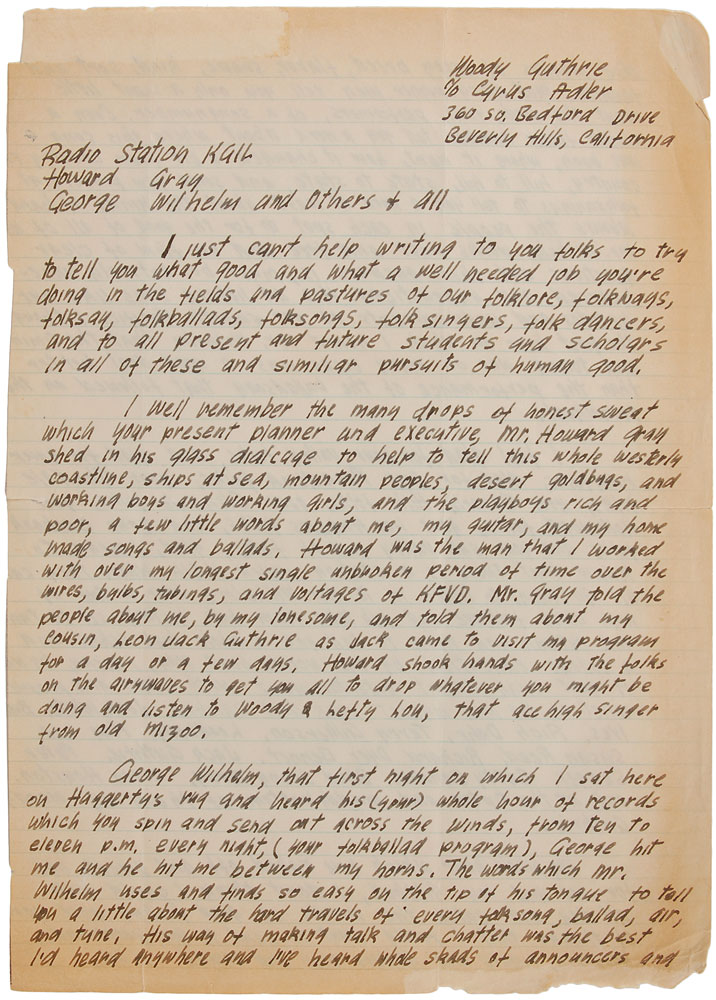 Woody Guthrie
℅ Cyrus Adler
360 So. Bedford Drive
Beverly Hills, California
Radio Station KGIL
Howard Gray
George Wilhelm and Others & all
I just can't help writing to you folks to try
to tell you what good and what a well needed job you're
doing in the fields and pastures of our folklore, folkways,
folksay, folkballads, folksongs, folk singers, folk dancers,
and to all present and future students and scholars
in all of these and similiar pursuits of human good.
I well remember the many drops of honest sweat
which your present planner and executive, Mr. Howard Gray
shed in his glass dialcage to help to tell this whole westerly
coastline, ships at sea, mountain peoples, desert goldbugs, and
working boys and working girls, and the playboys rich and
poor, a few little words about me, my guitar, and my home
made songs and ballads. Howard was the man that I worked
with over my longest single unbroken period of time over the
wires, bulbs, tubings, and voltages of KFVD. Mr. Gray told the
people about me, by my lonesome, and told them about my
cousin, Leon Jack Guthrie as Jack came to visit my program
for a day or a few days. Howard shook hands with the folks
on the airywaves to get you all to drop whatever you might be
doing and listen to Woody & Lefty Lou, that ace high singer
from old Mizoo.
George Wilhelm, that first night on which I sat here
on Haggerty's rug and heard his (your) whole hour of records
which you spin and send out across the winds, from ten to
eleven p.m. every night, (your folkballad program), George hit
me and he hit me between my horns. The words which Mr.
Wilhelm uses and finds so easy on the tip of his tongue to tell
you a little about the hard travels of every folksong, ballad, air,
and tune. His way of making talk and chatter was the best
I'd heard anywhere and I've heard whole skads of announcers and